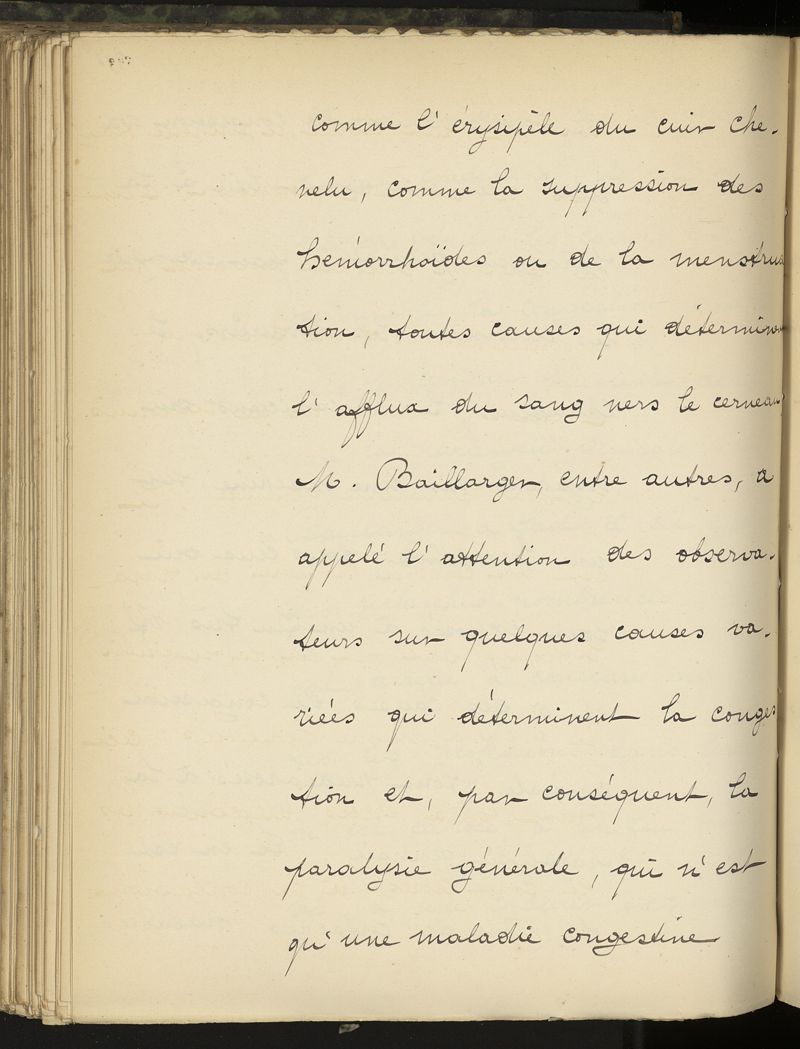 comme l'érysipèle du cuir che-
velu, comme la suppression des
hémorrhoïdes ou de la menstrua
tion, toutes causes qui déterminent
l'afflux du sang vers le cerveau
M. Baillarger, entre autres, a
appelé l'attention des observa-
teurs sur quelques causes va-
riées qui déterminent la conges
tion et, par conséquent, la
paralysie générale, qui n'est
qu'une maladie congestive